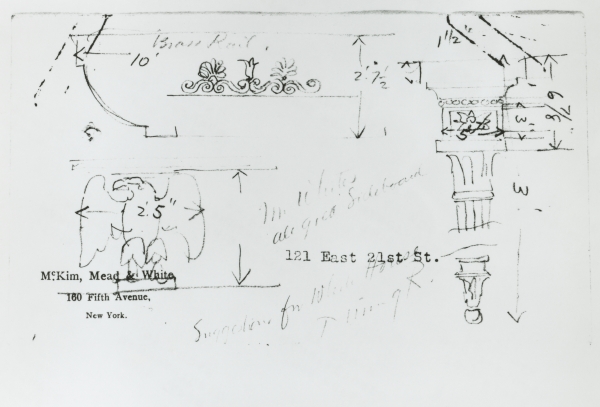 Brass Rail.
10'
2' 7½
1½"
6⅞
3'
5"
2'.5"
3'
Mr White's
antique Sideboard
121 East 21st St.
McKim, Mead & White,
160 Fifth Avenue,
New York.
Suggestions for White House